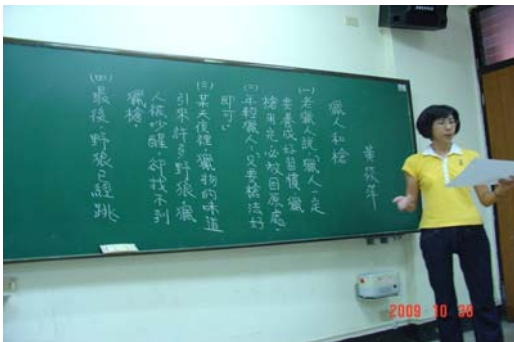 獵人和槍
黃振年
(一)老獵人說:「獵人一定
要養成好習慣,獵
槍用完必放回原處。
(二)年輕獵人:「只要槍法好
即可」
(三)某天夜裡,獵物的味道
引來許多野狼,獵
人被吵醒,卻找不到
獵槍。
(四)最後,野狼已經跳
2009 10 30